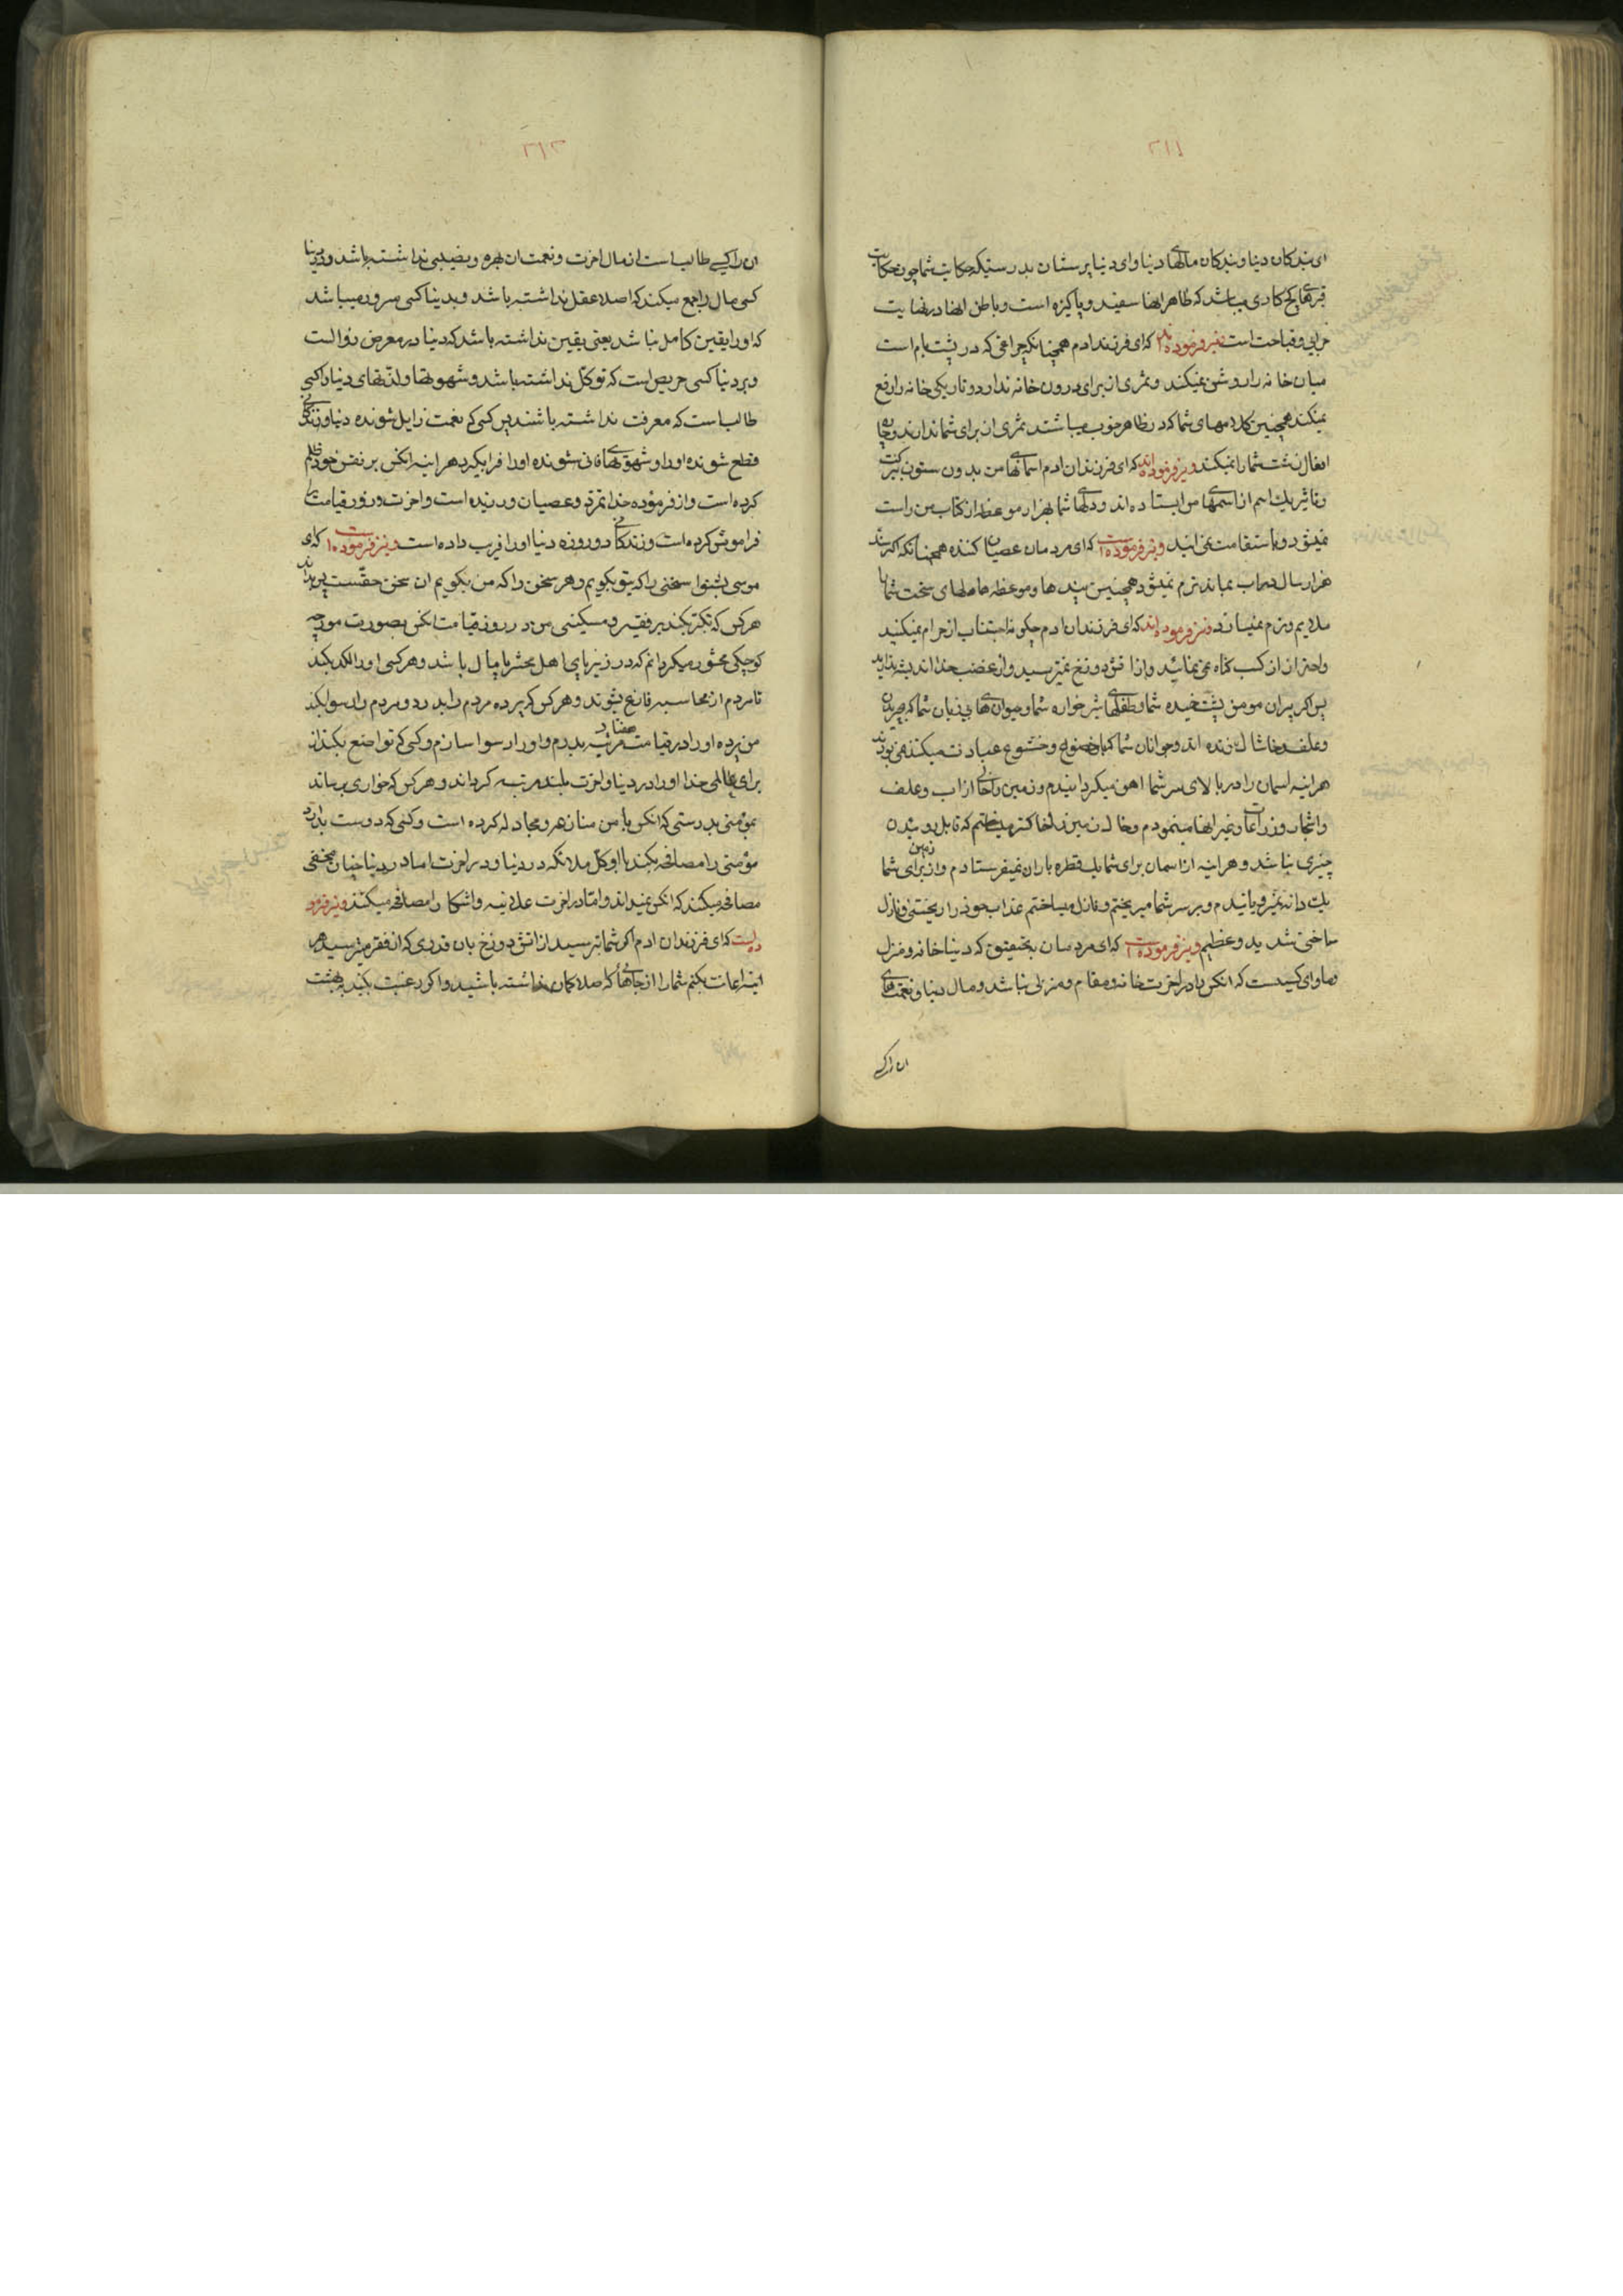 ۲۱۱
ای بندکان دنیا و بندکان مالهای دنیا و ای دنیا پرستان بدرستیکه حکایت شما چون حکایت
قبرهای کچ کاری میباشد که ظاهر انها سفید و پاکیزه است و باطن انها در نهایت
خرابی و قباحت است و نیز فرموده که ای فرزند ادم همچنانکه چراغی که در پشت بام است
میان خانه را روشن نمیکند و ثمری از برای درون خانه ندارد و تاریکی خانه را رفع
نمیکند همچنین کلامهای شما که در ظاهر خوب میباشند ثمری از برای شما ندارند و چاره
افعال زشت شما را نمیکنند و نیز فرموده‌اند که ای فرزندان ادم اسمانهای من بدون ستون ببرکت
و تاثیر یک اسم از اسمهای من ایستاده اند و دلهای شما بهزار موعظه از کتاب من راست
نمیشود و باستقامت نمی‌ایند و نیز فرموده است که ای مردمان عصیان کننده همچنانکه اکر سنک
هزار سال در اب بماند نرم نمیشود همچنین پندها و موعظه ها دلهای سخت شما را
ملایم و نرم نمیسازد و نیز فرموده‌اند که ای فرزندان ادم چکونه اجتناب از حرام نمیکنید
و احتراز از کسب کناه نمی‌نمائید و از اتش دوزخ نمیترسید و از غضب خدا اندیشه ندارید
پس اکر پیران مومن پشت خمیده شما و طفلهای شیر خواره شما و حیوان های بی زبان شما که چرندۀ
و علف و خاشاک خورنده اند و جوانان شما که با خضوع و خشوع عبادت میکنند نمی بودند
هر اینه اسمان را در بالای سر شما اهن میکردانیدم و زمین را خالی از اب و علف
و اشجار و زراعات و غیر انها مینمودم و خاک زمین را خاکستر میساختم که قابل روئیدن
چیزی نباشد و هر اینه از اسمان برای شما یک قطره باران نمیفرستادم و از زمین برای شما
یک دانه نمیرویانیدم و بر سر شما میریختم و نازل میساختم عذاب خود را ریختنی و نازل
ساختنی شدید و عظیم و نیز فرموده است که ای مردمان بتحقیق که دنیا خانه و منزل
و ماوای کسیست که انکس را در اخرت خانه و مقام و منزلی نباشد و مال دنیا و نعمتهای
ان را کسی
۲۱۲
ان را کسی طالب است از مال اخرت و نعمت ان بهره و نصیبی نداشته باشد و در دنیا
کسی مال را جمع میکند که اصلا عقل نداشته باشد و بدنیا کسی مسرور میباشد
که او را یقین کامل نباشد یعنی یقین نداشته باشد که دنیا در معرض زوالست
و بر دنیا کسی حریص است که توکل نداشته باشد و شهوتها و لذتهای دنیا را کسی
طالب است که معرفت نداشته باشد پس کسی که نعمت زایل شونده دنیا و زندکی
قطع شونده او را و شهوتهای فانی شونده او را فرا بکیرد هر اینه انکس بر نفس خود ظلم
کرده است و از فرموده خدا تمرد و عصیان ورزیده است و اخرت و روز قیامت را
فراموش کرده است و زندکانی دو روزه دنیا او را فریب داده است و نیز فرموده است که ای
موسی بشنو سخنی را که بتو بکویم و هر سخن را که من بکویم ان سخن حقست
هر کس که تکبر بکند بر فقیر و مسکینی من در روز قیامت انکس بصورت مورچه
کوچکی محشور میکردانم که در زیر پای اهل محشر پامال باشد و هر کسی او را لکد بکند
تا مردم از محاسبه فارغ بشوند و هر کس که پرده مردم را بدرد و مردم را رسوا بکند
من پرده او را در قیامت هفتاد مرتبه بدرم و او را رسوا سازم و کسی که تواضع بکند از
برای عالمی خدا او را در دنیا و اخرت بلند مرتبه کرداند و هر کس که خواری برساند
بمؤمنی بدرستی که انکس با من منازعه و مجادله کرده است و کسی که دوست بدارد
مؤمنی را مصافحه بکنند با او کل ملائکه در دنیا و در اخرت اما در دنیا چنان مخفی
مصافحه میکنند که انکس نمیداند و امّا در اخرت علانیه و اشکارا مصافحه میکنند و نیز فرمو
ده است که ای فرزندان ادم اکر شما بترسید از اتش دوزخ بان قدری که از فقر میترسید هر
اینه اعانت بکنم شما را از جاهائی که اصلا کمان نداشته باشید و اکر رغبت بکنید ببهشت